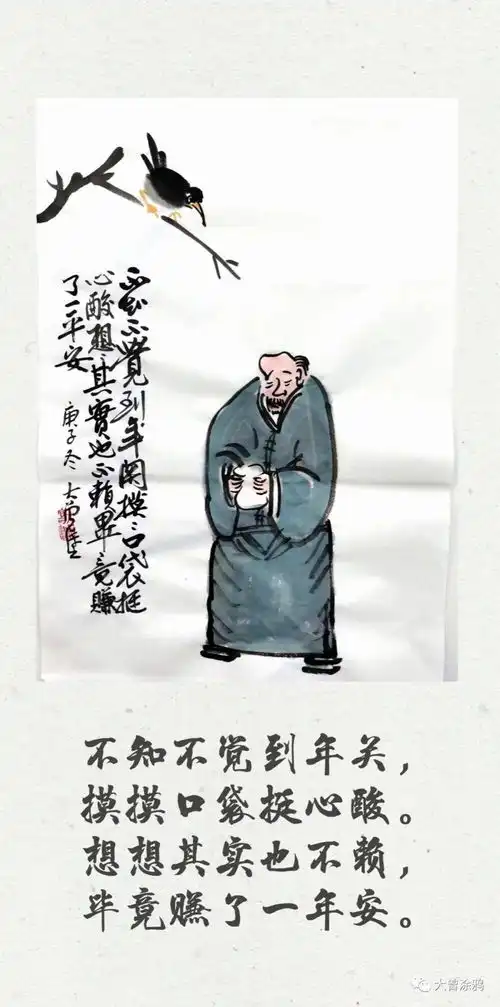 不知不覺到年関摸:口袋挺
心酸想:其實也不賴畢竟賺
了一平安
庚子冬 大曾
不知不觉到年关，
摸摸口袋挺心酸。
想想其实也不赖，
毕竟赚了一年安。
大曾涂鸦